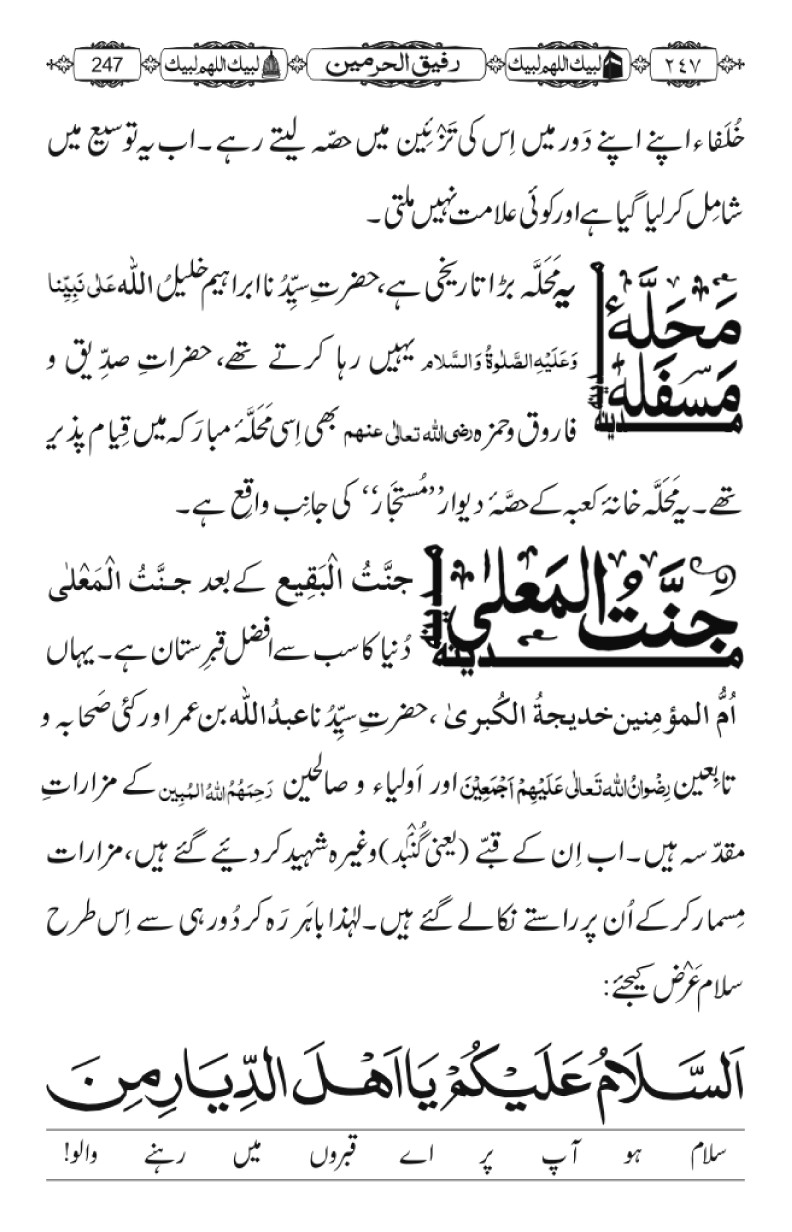 ٢٤٧ لبیك اللھم لبیك رفیق الحرمین لبیك اللھم لبیك 247
خُلَفاء اپنے اپنے دَور میں اِس کی تَزْئِین میں حصّہ لیتے رہے۔ اب یہ توسیع میں
شامِل کر لیا گیا ہے اور کوئی علامت نہیں ملتی۔
مَحَلَّۂ مَسفَلہ
یہ مَحَلَّہ بڑا تاریخی ہے، حضرتِ سیِّدُنا ابراھیم خلیلُ اللّٰه عَلٰی نَبِیِّنا
وَعَلَیْہِ الصَّلٰوۃُ وَالسَّلام یہیں رہا کرتے تھے، حضراتِ صدِّیق و
فاروق و حمزہ رضی اللّٰه تعالٰی عنھم بھی اِسی مَحَلَّۂ مبارَکہ میں قِیام پذیر
تھے۔ یہ مَحَلَّہ خانۂ کعبہ کے حصَّۂ دیوار ’’مُستجَار‘‘ کی جانِب واقِع ہے۔
جنَّتُ المَعلٰی
جنَّتُ الْبَقِیع کے بعد جنَّتُ الْمَعْلٰی
دُنیا کا سب سے افضل قبرِستان ہے۔ یہاں
اُمُّ المؤمِنین خدیجۃُ الکُبریٰ ، حضرتِ سیِّدُنا عبدُاللّٰه بن عمر اور کئی صَحابہ و
تابِعین رِضْوانُ اللّٰه تَعالٰی عَلَیْھِمْ اَجْمَعِیْن اور اَولیاء و صالحین رَحِمَھُمُ اللّٰهُ المُبِین کے مزاراتِ
مقدّسہ ہیں۔ اب اِن کے قبّے (یعنی گُنْبَد) وغیرہ شہید کر دیئے گئے ہیں، مزارات
مِسمار کر کے اُن پر راستے نکالے گئے ہیں۔ لہٰذا باہَر رَہ کر دُور ہی سے اِس طرح
سلام عَرْض کیجئے:
اَلسَّلَامُ عَلَيْكُمْ يَا اَهْلَ الدِّيَارِ مِنَ
سلام ہو آپ پر اے قبروں میں رہنے والو!